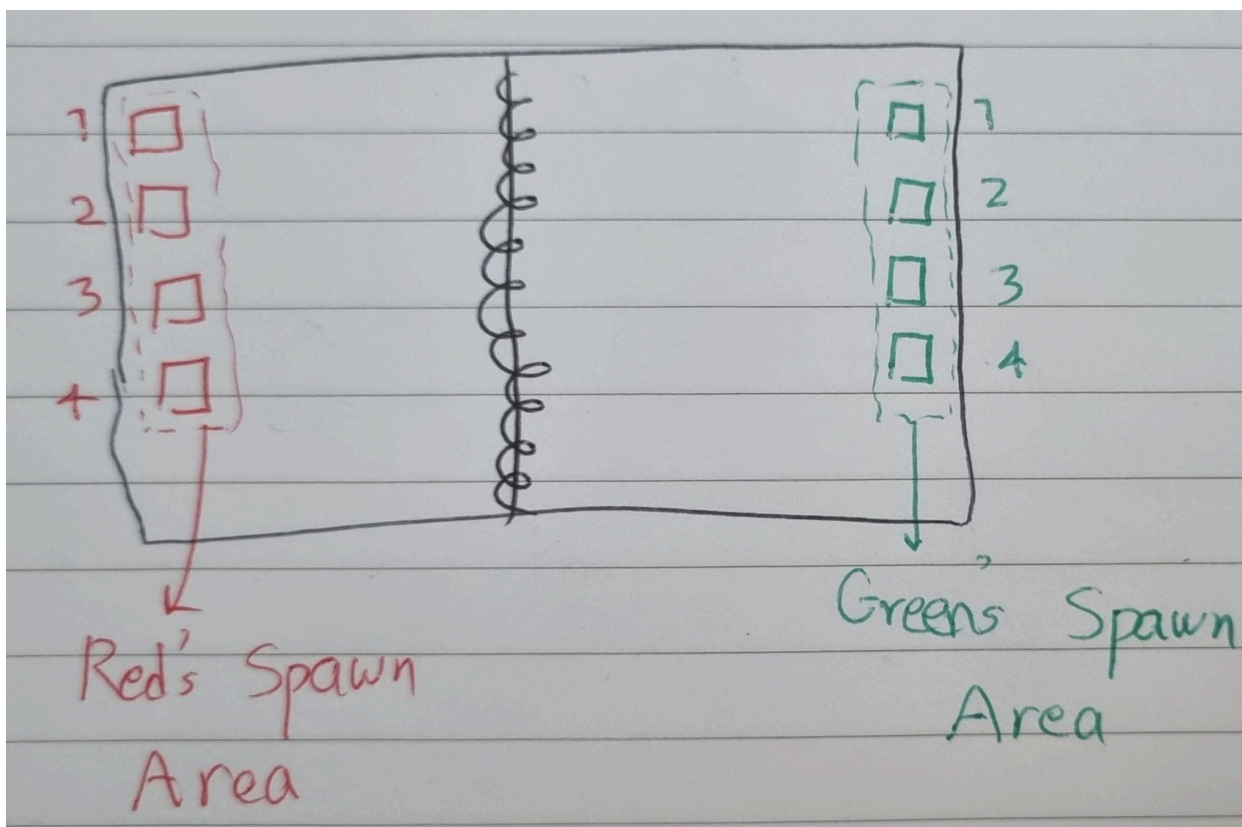 1
1
2
2
3
3
4
4
Red's Spawn
Area
Green's Spawn
Area